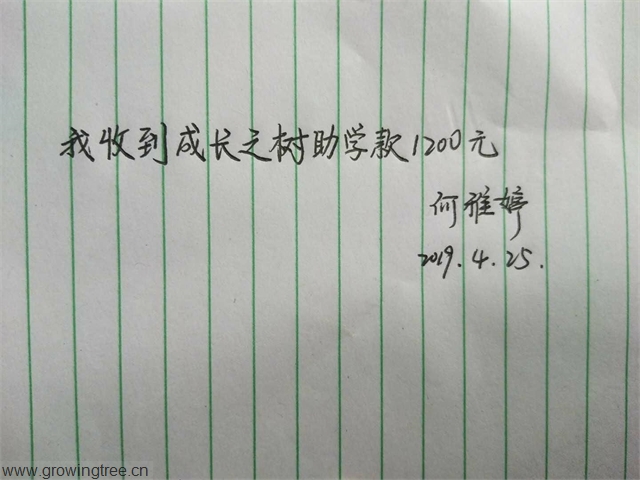 我收到成长之树助学款1200元
何雅婷
2019.4.25.
www.growingtree.cn